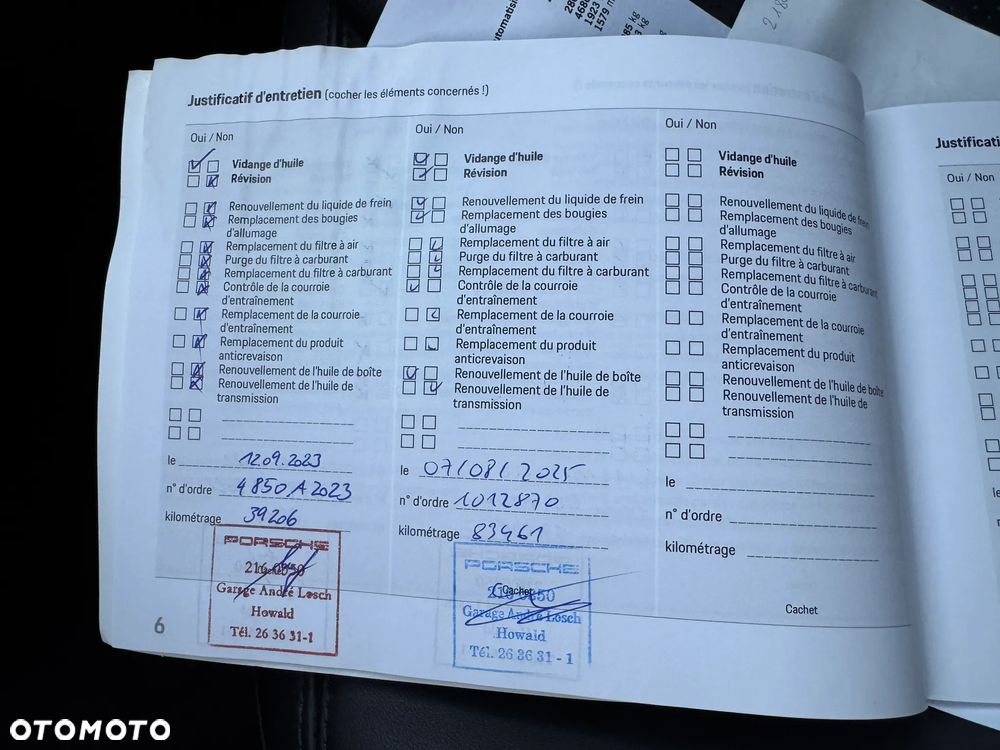 utomatis
288
468
1923
1579 m
85 kg
kg
218
Justificatif d'entretien (cocher les éléments concernés !)
Oui / Non
Vidange d'huile
Révision
Renouvellement du liquide de frein
Remplacement des bougies
d'allumage
Remplacement du filtre à air
Purge du filtre à carburant
Remplacement du filtre à carburant
Contrôle de la courroie
d'entraînement
Remplacement de la courroie
d'entraînement
Remplacement du produit
anticrevaison
Renouvellement de l'huile de boîte
Renouvellement de l'huile de
transmission
le 12.09.2023
n° d'ordre 4850A2023
kilométrage 39206
PORSCHE
216 0350
Garage André Losch
Howald
Tél. 26 36 31-1
6
Oui / Non
Vidange d'huile
Révision
Renouvellement du liquide de frein
Remplacement des bougies
d'allumage
Remplacement du filtre à air
Purge du filtre à carburant
Remplacement du filtre à carburant
Contrôle de la courroie
d'entraînement
Remplacement de la courroie
d'entraînement
Remplacement du produit
anticrevaison
Renouvellement de l'huile de boîte
Renouvellement de l'huile de
transmission
le 07/08/2025
n° d'ordre 1012870
kilométrage 83461
PORSCHE
Cachet
Garage André Losch
Howald
Tél. 26 36 31 - 1
Oui / Non
Vidange d'huile
Révision
Renouvellement du liquide de frein
Remplacement des bougies
d'allumage
Remplacement du filtre à air
Purge du filtre à carburant
Remplacement du filtre à carburant
Contrôle de la courroie
d'entraînement
Remplacement de la courroie
d'entraînement
Remplacement du produit
anticrevaison
Renouvellement de l'huile de boîte
Renouvellement de l'huile de
transmission
le
n° d'ordre
kilométrage
Cachet
Justificati
Oui / Non
le
OTOMOTO